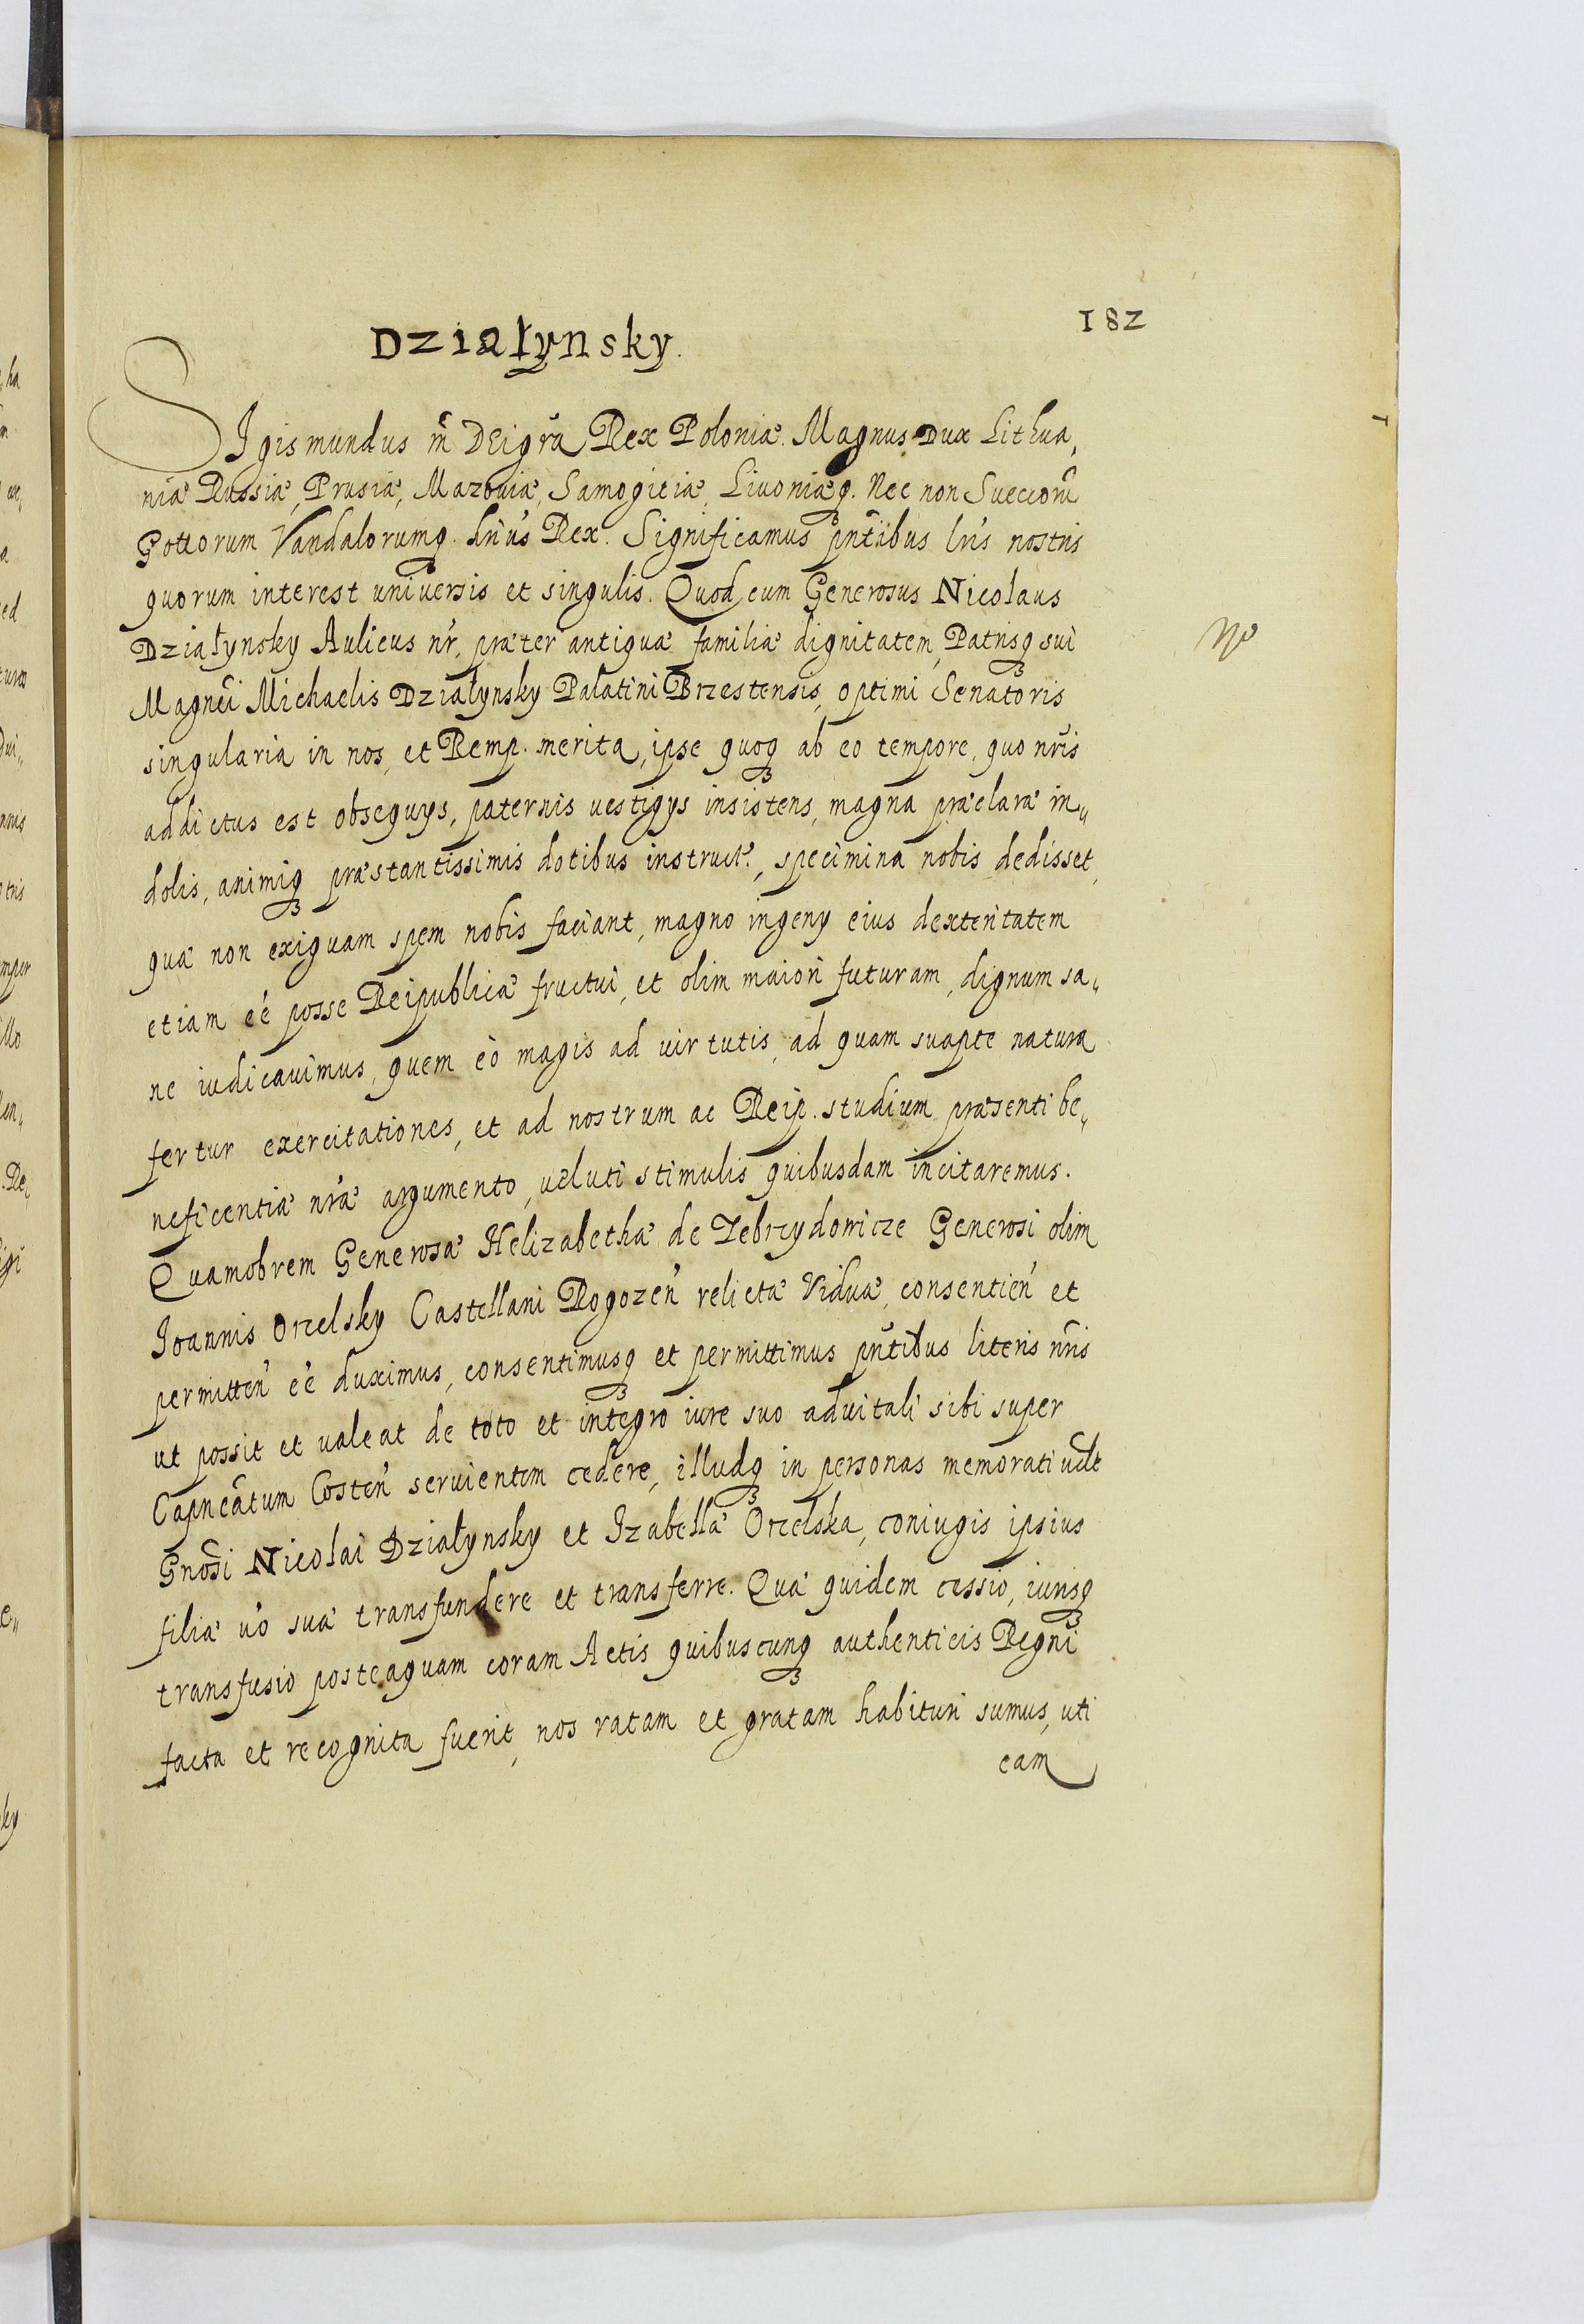 182
Działynsky.
SIgismundus iii DEi gra Rex Poloniæ. Magnus Dux Lithua,
niæ Russiæ, Prusiæ, Mazouiæ, Samogitiæ, Liuoniæq. Nec non Sueccoru
Gottorum Vandalorumq. hrius Rex. Significamus pntibus lris nostris
quorum interest uniuersis et singulis. Quod cum Generosus Nicolaus
Działynsky Aulicus nr, præter antiquæ familiæ dignitatem, Patrisq sui
Magnci Michaelis Działynsky Palatini Brzestensis, optimi Senatoris
singularia in nos, et Remp. merita, ipse quoq ab eo tempore, quo nris
addictus est obsequys, paternis uestigys insistens, magna præclaræ in„
dolis, animiq præstantissimis dotibus instructi, specimina nobis dedisset,
quæ non exiguam spem nobis faciant, magno ingeny eius dexteritatem
etiam ee posse Reipublicæ fructui, et olim maiori futuram, dignum sa„
ne iudicauimus, quem eò magis ad uirtutis, ad quam suapte natura
fertur exercitationes, et ad nostrum ac Reip. studium præsenti be„
neficentiæ nræ argumento, ueluti stimulis quibusdam incitaremus.
Quamobrem Generosæ Helizabethæ de Zebrzydowicze Generosi olim
Joannis Orzelsky Castellani Rogozen relictæ Viduæ, consentien et
permitten ee duximus, consentimusq et permittimus pntibus literis nris
ut possit et ualeat de toto et integro iure suo aduitali sibi super
Capneatum Costen seruientem cedere, illudq in personas memorati udlt
Gnosi Nicolai Działynsky et Izabellæ Orzelska, coniugis ipsius
filiæ uo suæ transfundere et transferre. Quæ quidem cessio, iurisq
transfusio posteaquam coram Actis quibuscunq authenticis Regni
facta et recognita fuerit, nos ratam et gratam habituri sumus, uti
eam